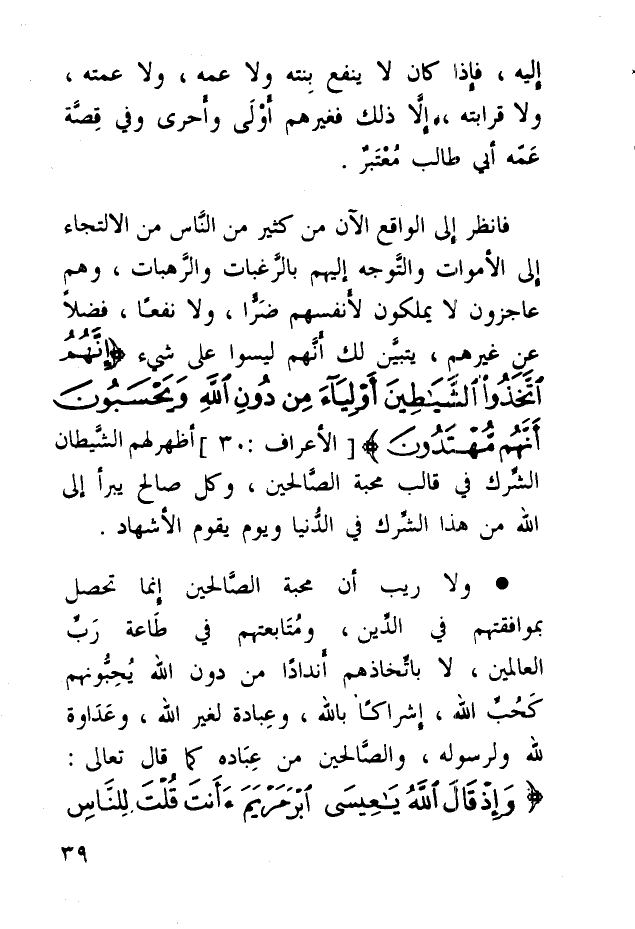 إليه ، فإذا كان لا ينفع بِنته ولا عمه ، ولا عمته ،
ولا قرابته ،، إلَّا ذلك فغيرهم أَوْلَى وأَحرى وفي قِصَّة
عَمّه أبي طالب مُعْتَبَرٌ .
فانظر إلى الواقع الآن من كثير من النَّاس من الالتجاء
إلى الأموات والتَّوجه إليهم بالرَّغبات والرَّهبات ، وهم
عاجزون لا يملكون لأنفسهم ضرًّا ، ولا نفعًا ، فضلاً
عن غيرهم ، يتبيَّن لك أنَّهم ليسوا على شيء ﴿إِنَّهُمُ
ٱتَّخَذُوا۟ ٱلشَّيَـٰطِينَ أَوْلِيَآءَ مِن دُونِ ٱللَّهِ وَيَحْسَبُونَ
أَنَّهُم مُّهْتَدُونَ ﴾ [ الأعراف : ٣٠ ] أظهر لهم الشَّيطان
الشِّرك في قالب محبة الصَّالحين ، وكل صالح يبرأ إلى
الله من هذا الشِّرك في الدُّنيا ويوم يقوم الأشهاد .
● ولا ريب أن محبة الصَّالحين إنما تحصل
بموافقتهم في الدِّين ، ومُتَابعتهم في طَاعة رَبِّ
العالمين ، لا باتِّخاذهم أَندادًا من دون الله يُحِبُّونهم
كَحُبِّ الله ، إشراكًا بالله ، وعِبادة لغير الله ، وعَدَاوة
لله ولرسوله ، والصَّالحين من عِبَاده كما قال تعالى :
﴿ وَإِذْ قَالَ ٱللَّهُ يَـٰعِيسَى ٱبْنَ مَرْيَمَ ءَأَنتَ قُلْتَ لِلنَّاسِ
٣٩